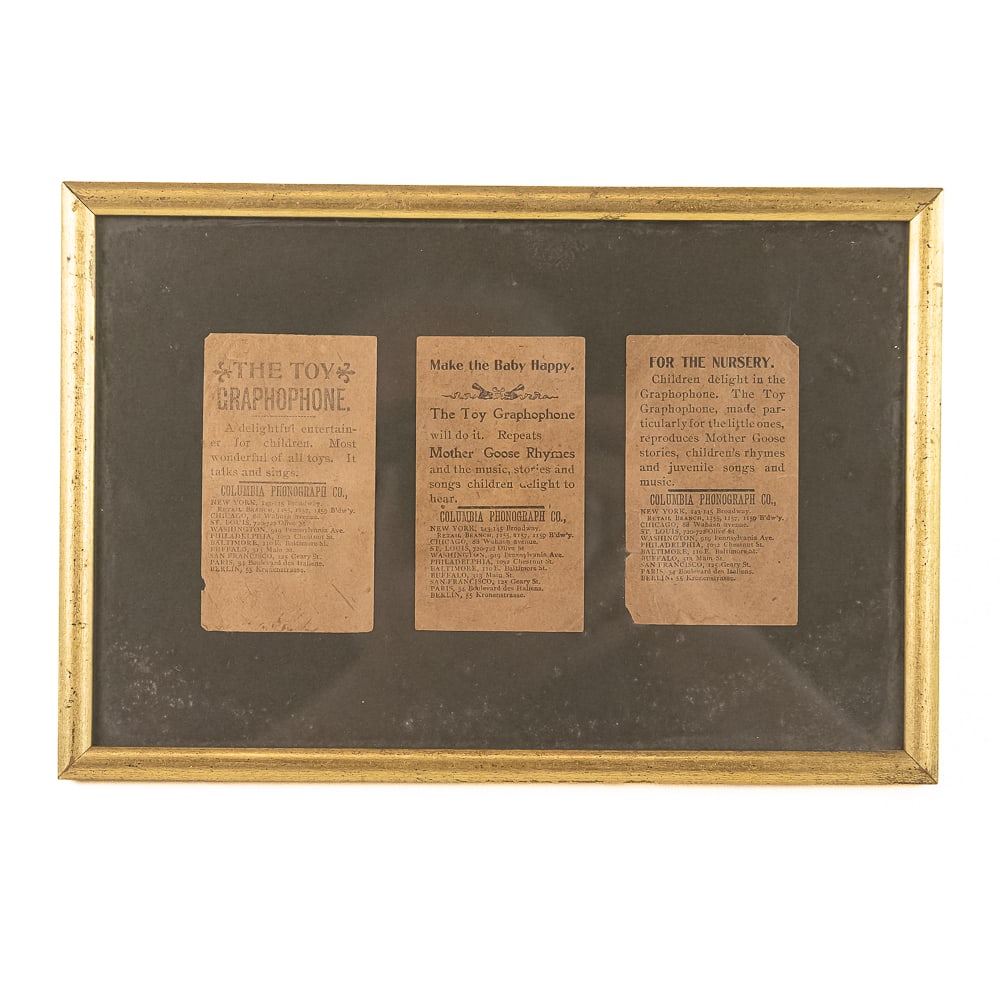 THE TOY
GRAPHOPHONE.
A delightful entertain-
er for children. Most
wonderful of all toys. It
talks and sings.
COLUMBIA PHONOGRAPH CO.,
NEW YORK, 143-145 Broadway.
RETAIL BRANCH, 1155, 1157, 1159 B'dw'y.
CHICAGO, 88 Wabash avenue.
ST. LOUIS, 720-722 Olive St
WASHINGTON, 919 Pennsylvania Ave.
PHILADELPHIA, 1032 Chestnut St.
BALTIMORE, 110 E. Baltimore St.
BUFFALO, 313 Main St.
SAN FRANCISCO, 125 Geary St.
PARIS, 34 Boulevard des Italiens.
BERLIN, 55 Kronenstrasse.
Make the Baby Happy.
The Toy Graphophone
will do it. Repeats
Mother Goose Rhymes
and the music, stories and
songs children delight to
hear.
COLUMBIA PHONOGRAPH CO.,
NEW YORK, 143-145 Broadway.
RETAIL BRANCH, 1155, 1157, 1159 B'dw'y.
CHICAGO, 88 Wabash avenue.
ST. LOUIS, 720-722 Olive St
WASHINGTON, 919 Pennsylvania Ave.
PHILADELPHIA, 1032 Chestnut St.
BALTIMORE, 110 E. Baltimore St.
BUFFALO, 313 Main St.
SAN FRANCISCO, 125 Geary St.
PARIS, 34 Boulevard des Italiens.
BERLIN, 55 Kronenstrasse.
FOR THE NURSERY.
Children delight in the
Graphophone. The Toy
Graphophone, made par-
ticularly for the little ones,
reproduces Mother Goose
stories, children's rhymes
and juvenile songs and
music.
COLUMBIA PHONOGRAPH CO.,
NEW YORK, 143-145 Broadway.
RETAIL BRANCH, 1155, 1157, 1159 B'dw'y.
CHICAGO, 88 Wabash avenue.
ST. LOUIS, 720-722 Olive St
WASHINGTON, 919 Pennsylvania Ave.
PHILADELPHIA, 1032 Chestnut St.
BALTIMORE, 110 E. Baltimore St.
BUFFALO, 313 Main St.
SAN FRANCISCO, 125 Geary St.
PARIS, 34 Boulevard des Italiens.
BERLIN, 55 Kronenstrasse.